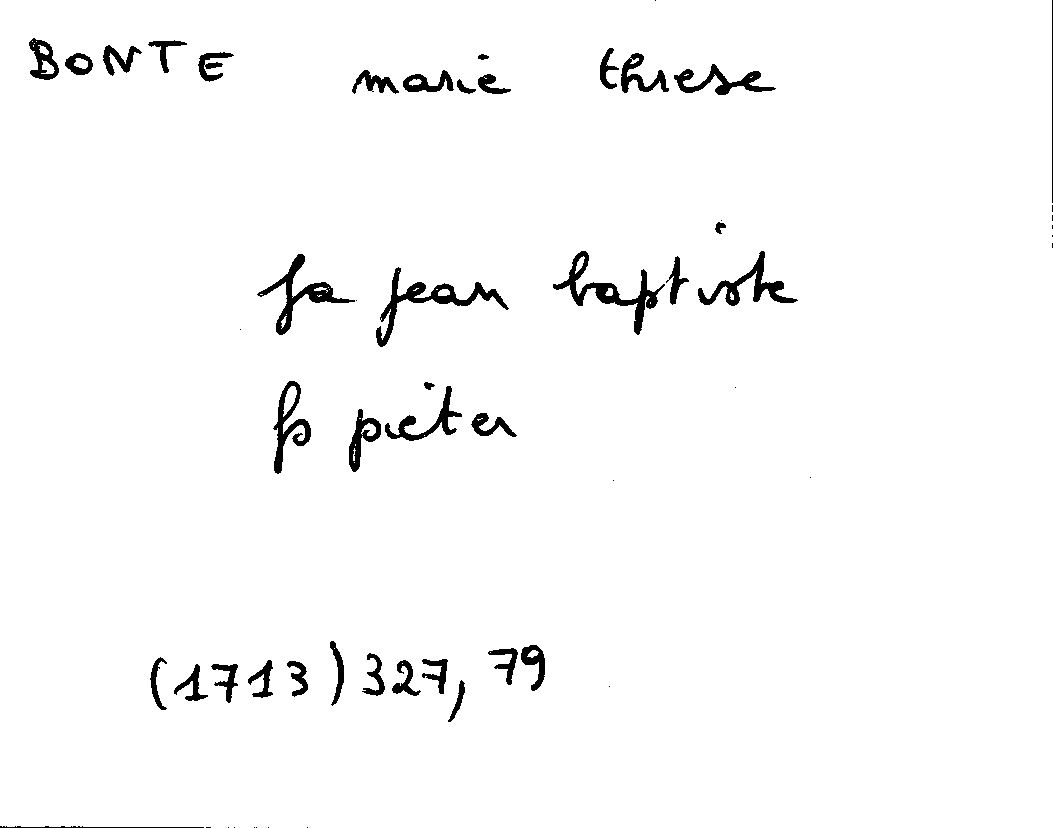 BONTE marie threse
fa jean baptiste
fs pieter
(1713) 327, 79